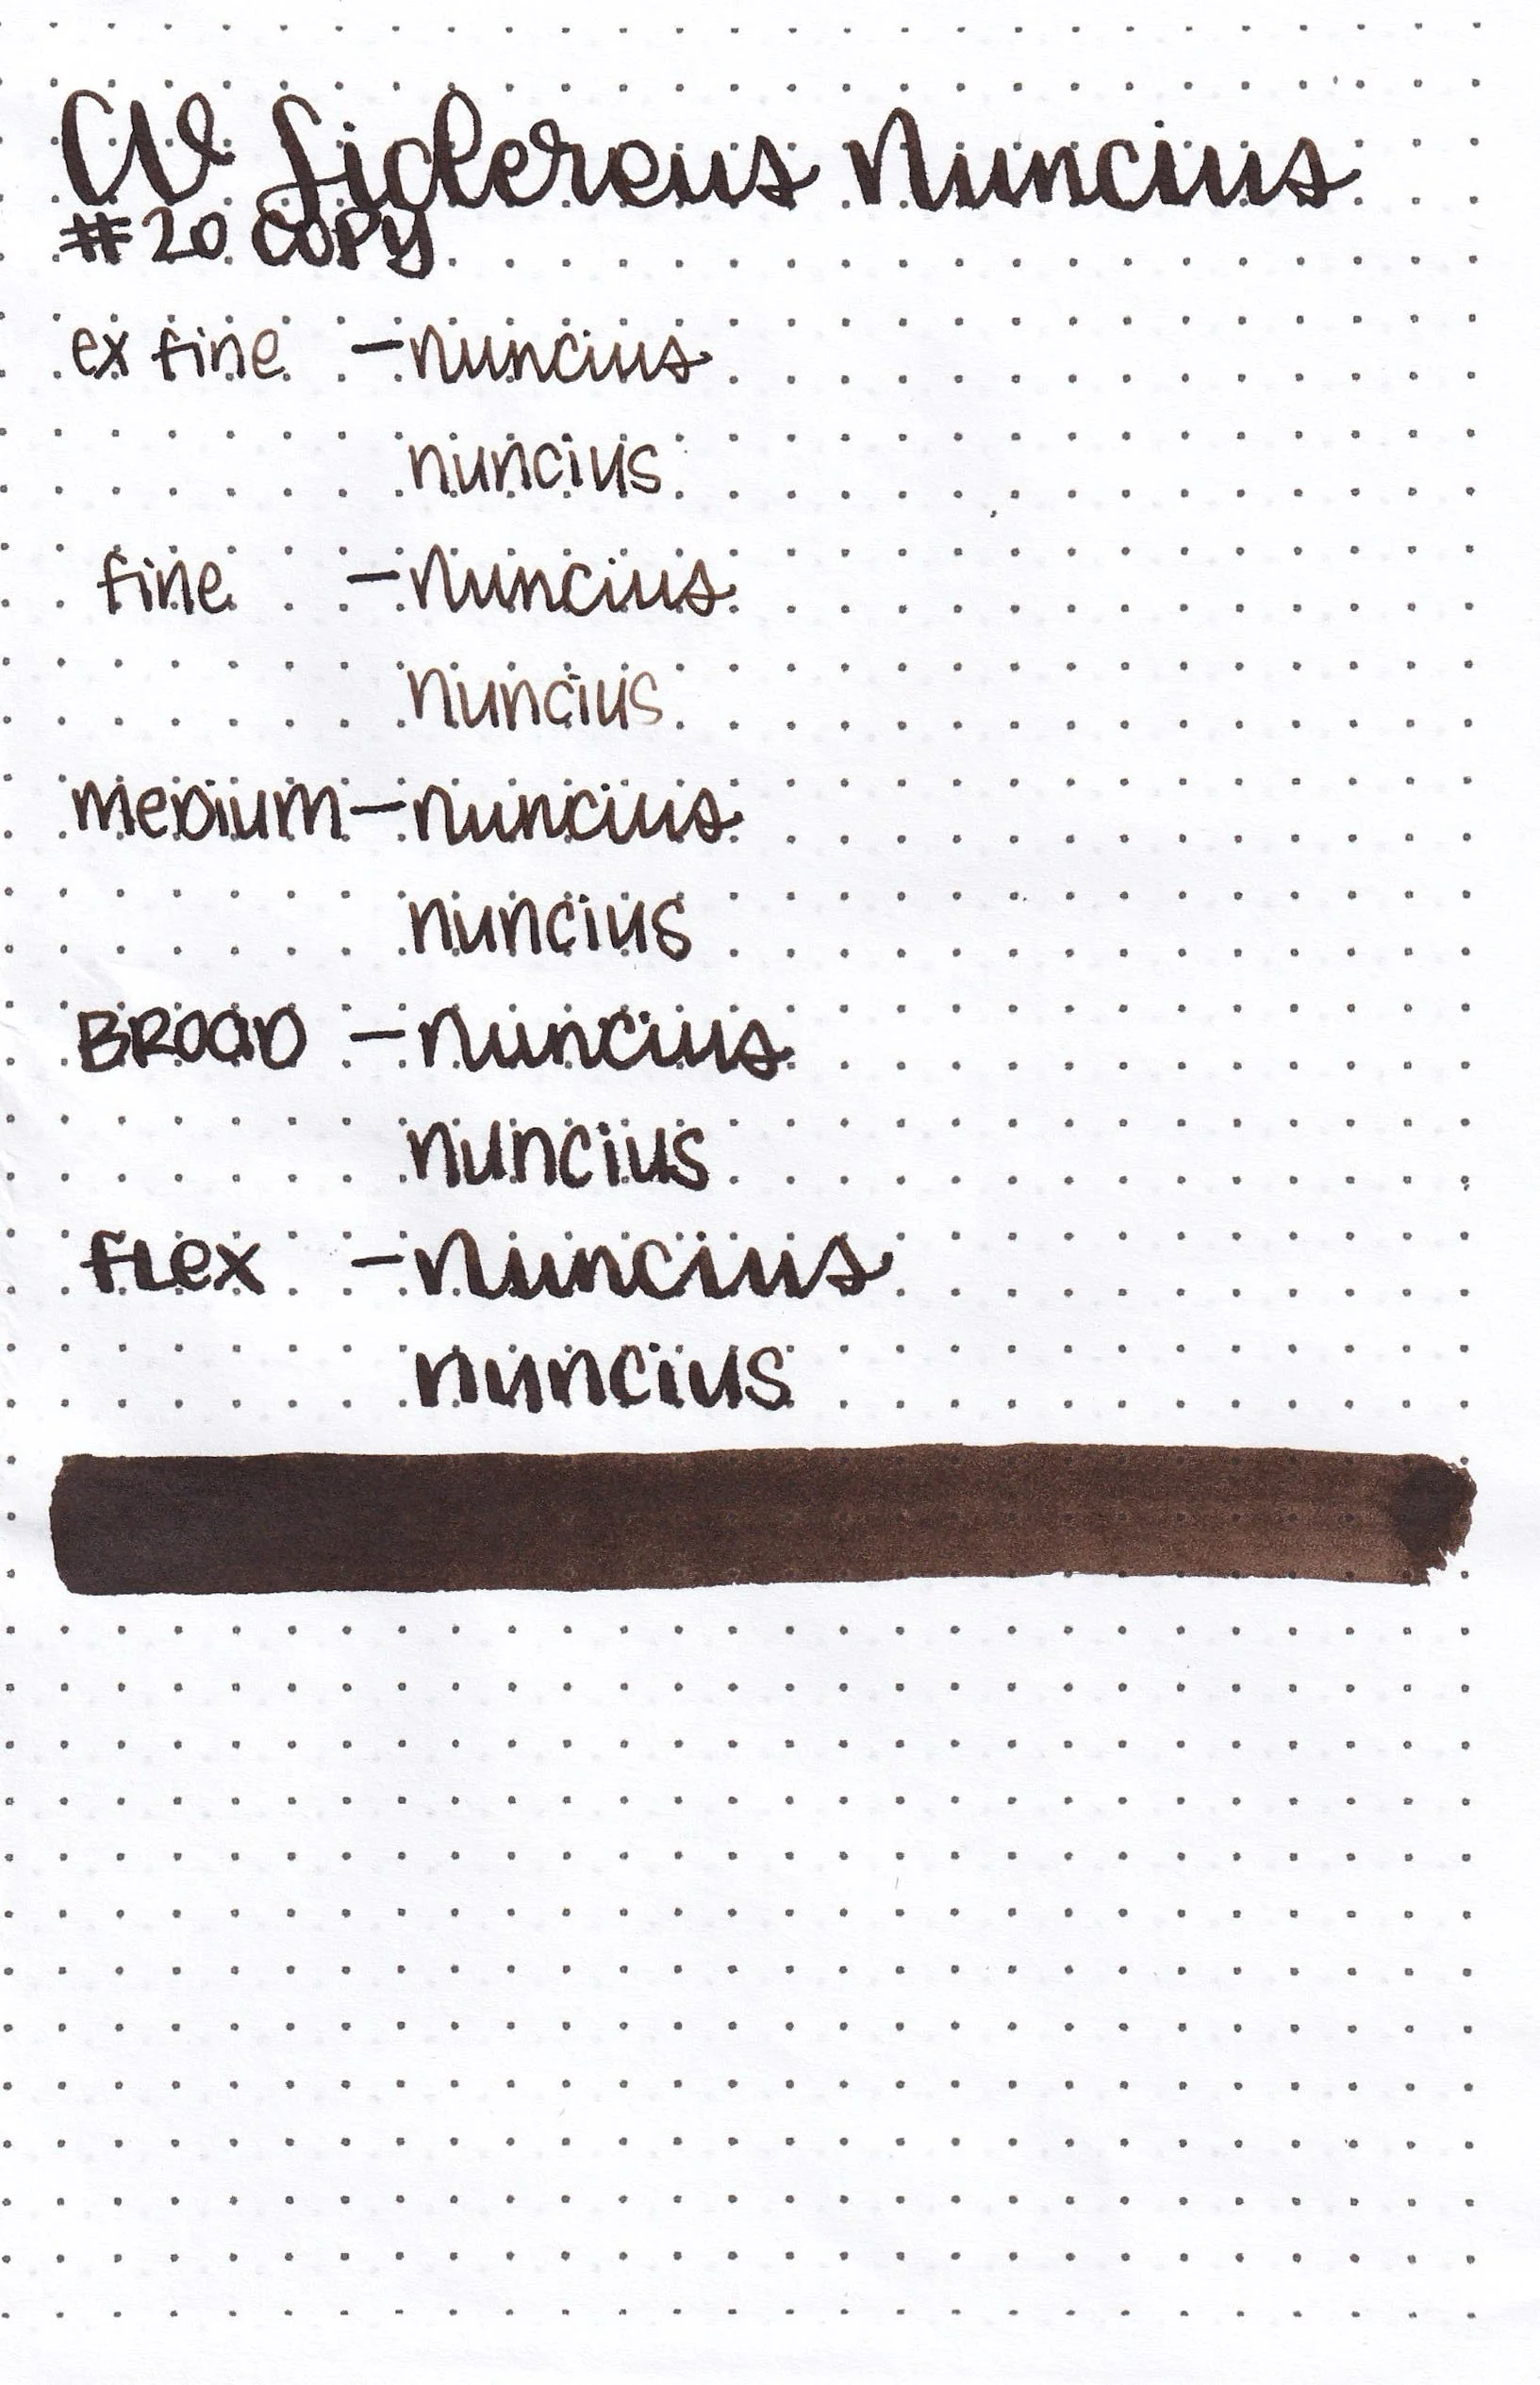 CV Sidereus Nuncius
#20 COPY
ex fine - nuncius
nuncius
fine - nuncius
nuncius
meDium - nuncius
nuncius
BROaD - nuncius
nuncius
fLex - nuncius
nuncius